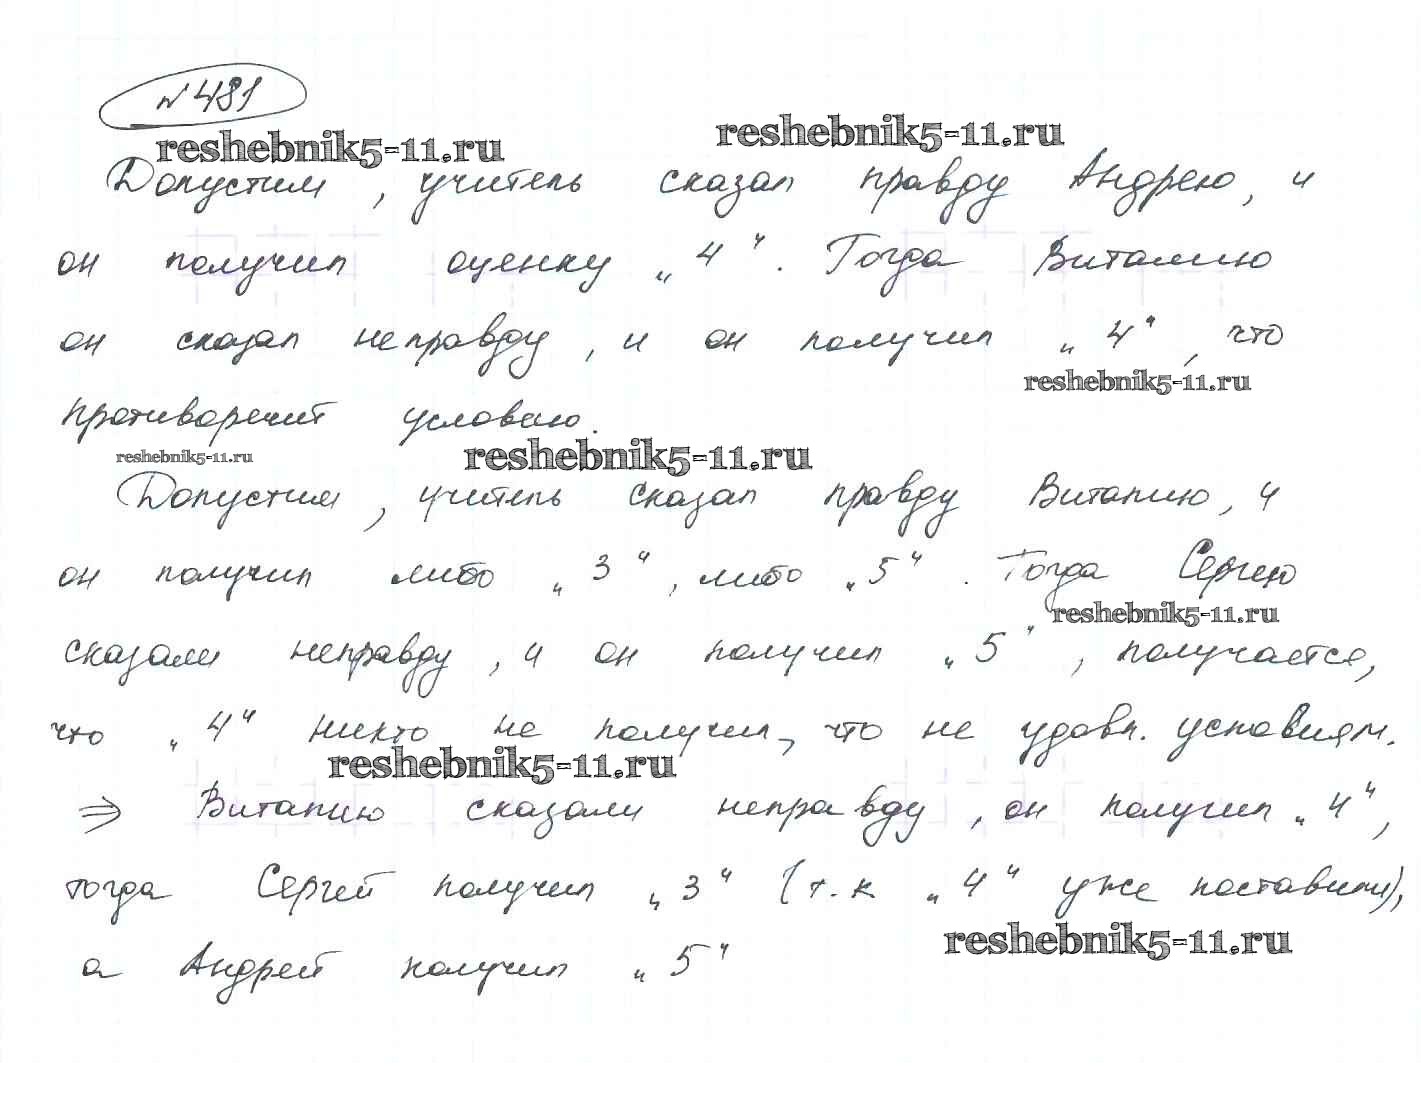 № 481
reshebnik5-11.ru reshebnik5-11.ru
Допустим, учитель сказал правду Андрею, и
он получил оценку „4“. Тогда Виталию
он сказал неправду, и он получил „4“, что
reshebnik5-11.ru
противоречит условию.
reshebnik5-11.ru reshebnik5-11.ru
Допустим, учитель сказал правду Виталию, и
он получил либо „3“, либо „5“. Тогда Сергею
reshebnik5-11.ru
сказали неправду, и он получил „5“, получается,
что „4“ никто не получил, что не удовл. условиям.
reshebnik5-11.ru
⇒ Виталию сказали неправду, он получил „4“,
тогда Сергей получил „3“ (т.к „4“ уже поставили),
reshebnik5-11.ru
а Андрей получил „5“